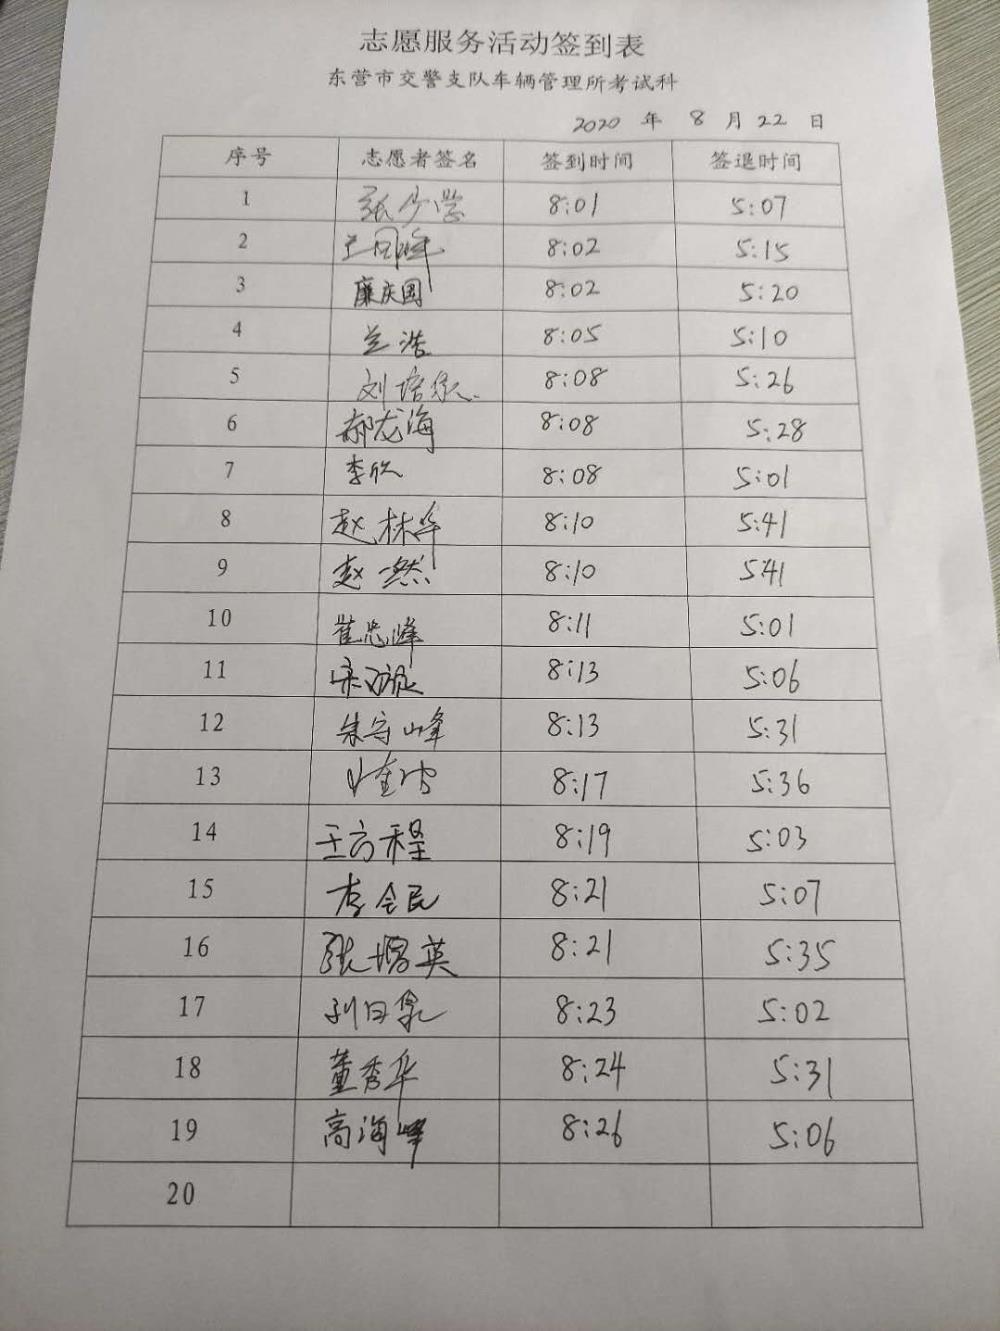 志愿服务活动签到表
东营市交警支队车辆管理所考试科
2020 年 8 月 22 日
序号 志愿者签名 签到时间 签退时间
1 张少营 8:01 5:07
2 8:02 5:15
3 廉庆国 8:02 5:20
4 兰浩 8:05 5:10
5 刘培 8:08 5:26
6 郝龙海 8:08 5:28
7 李欣 8:08 5:01
8 赵林华 8:10 5:41
9 赵一然 8:10 541
10 崔忠峰 8:11 5:01
11 8:13 5:06
12 朱守峰 8:13 5:31
13 8:17 5:36
14 王方程 8:19 5:03
15 李会民 8:21 5:07
16 张增英 8:21 5:35
17 8:23 5:02
18 董秀华 8:24 5:31
19 高海峰 8:26 5:06
20